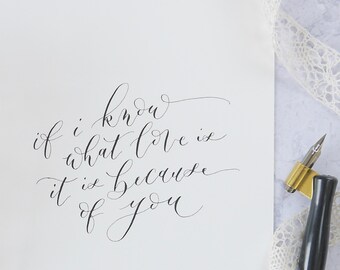 if i know
what love is
it is because
of you